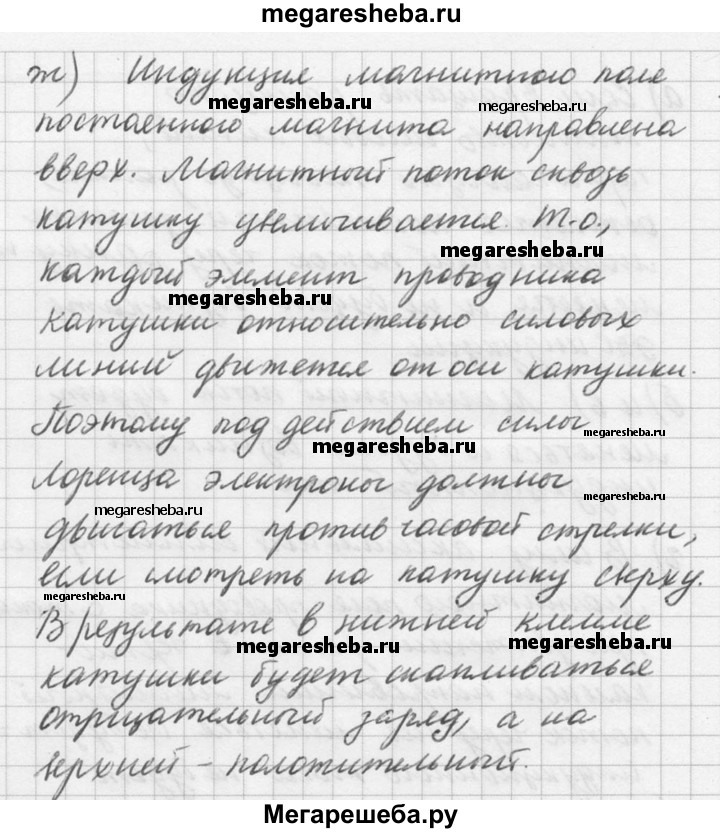 megaresheba.ru
ж) Индукция магнитного поля
megaresheba.ru megaresheba.ru
постоенного магнита направлена
вверх. Магнитный поток сквозь
катушку увеличивается. Т.о.,
megaresheba.ru
каждый элемент проводника
megaresheba.ru
катушки относительно силовых
линий движется от оси катушки.
Поэтому под действием силы
megaresheba.ru megaresheba.ru
Лоренца электроны должны
megaresheba.ru megaresheba.ru
двигаться против часовой стрелки,
если смотреть на катушку сверху.
megaresheba.ru
В результате в нижней клемме
megaresheba.ru megaresheba.ru
катушки будет скапливаться
отрицательный заряд, а на
верхней – положительный.
Мегарешеба.ру